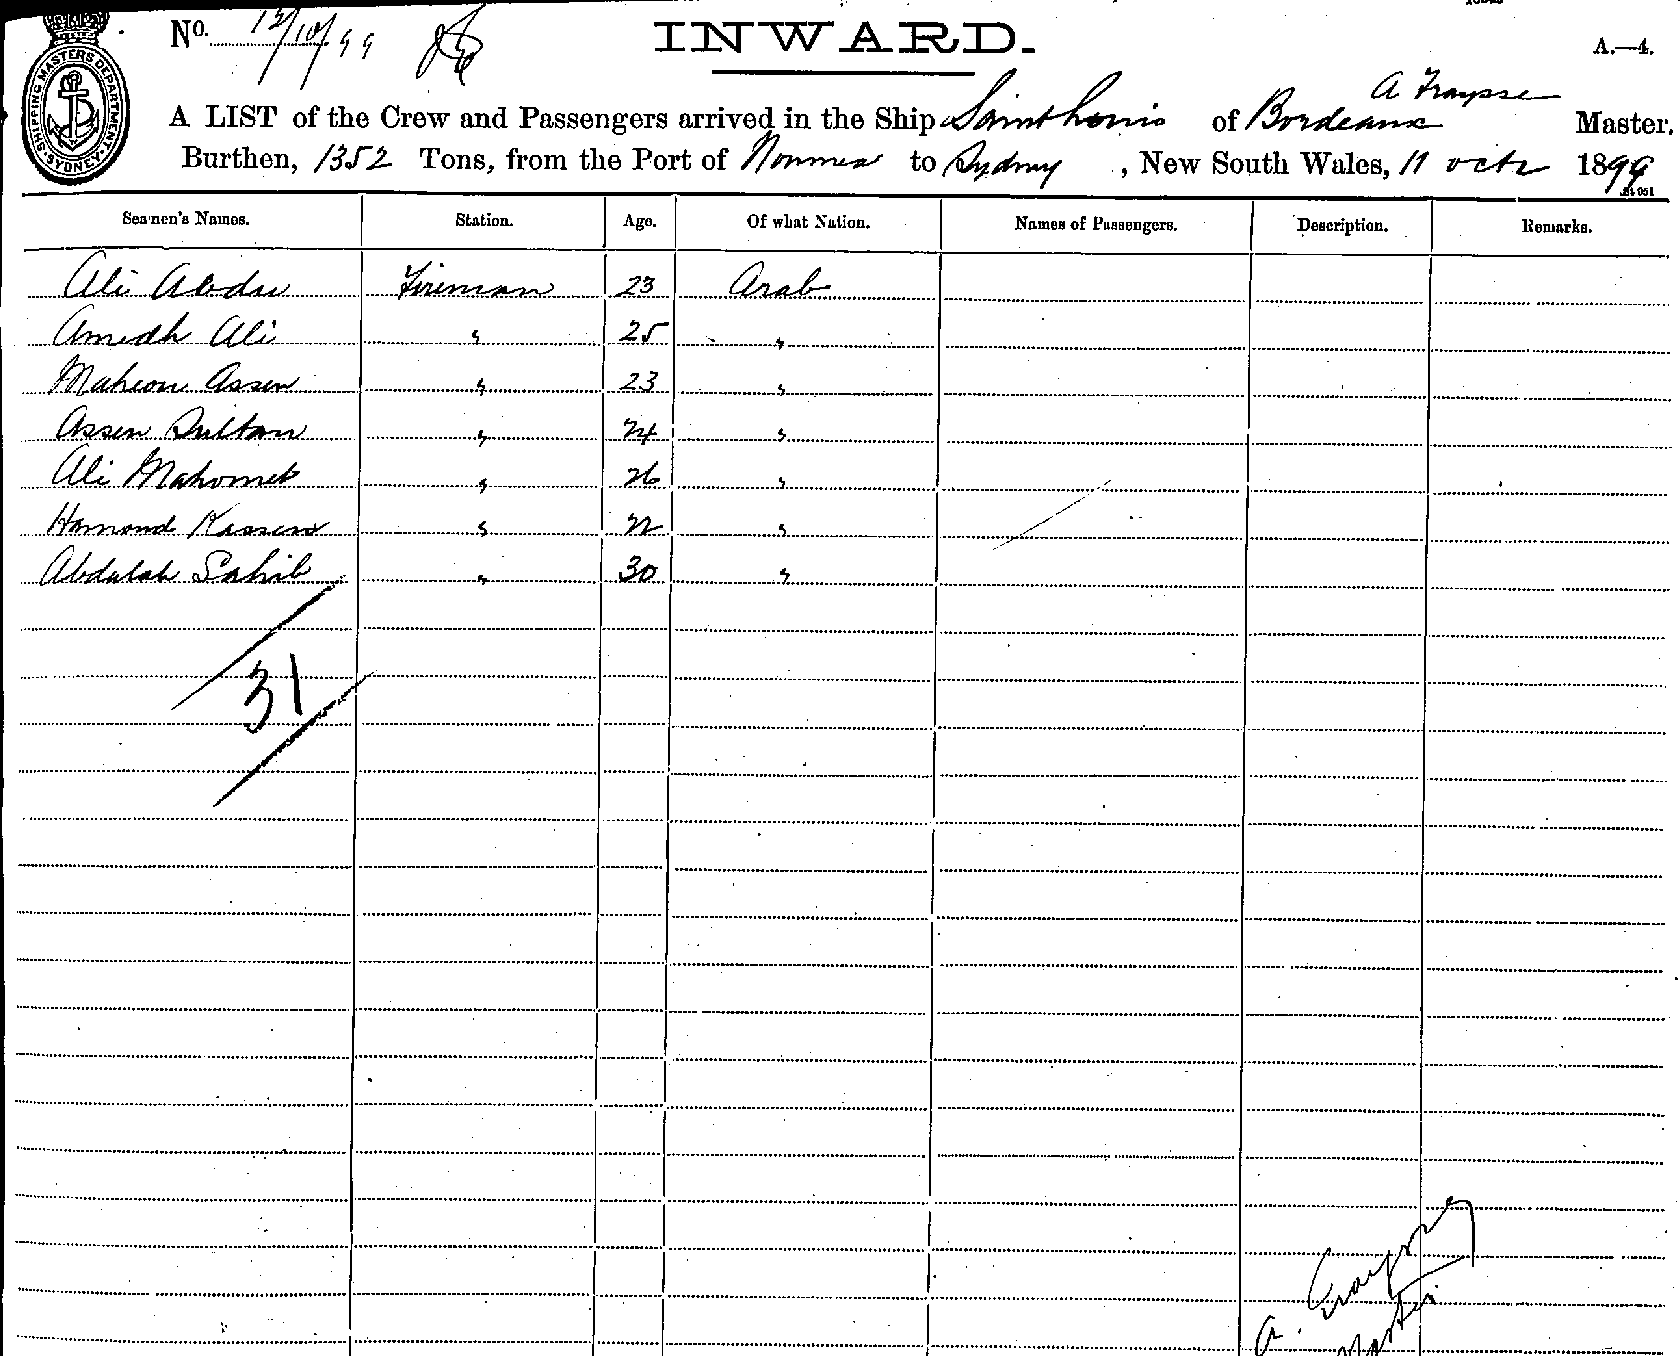 No. 12/10/99
INWARD.
A.—4.
SHIPPING MASTERS DEPARTMENT SYDNEY
A Fraysse
A LIST of the Crew and Passengers arrived in the Ship Saint Louis of Bordeaux Master,
Burthen, 1352 Tons, from the Port of Noumea to Sydney , New South Wales, 11 octr 1899
Seamen's Names. Station. Age. Of what Nation. Names of Passengers. Description. Remarks.
Ali Abdu Fireman 23 Arab
Amedh Ali " 25 "
Maheon Assen " 23 "
Assen Sultan " 24 "
Ali Mahomet " 26 "
Hamond Kassem " 22 "
Abdalah Sahib " 30 "
31
A. Fraysse
Master